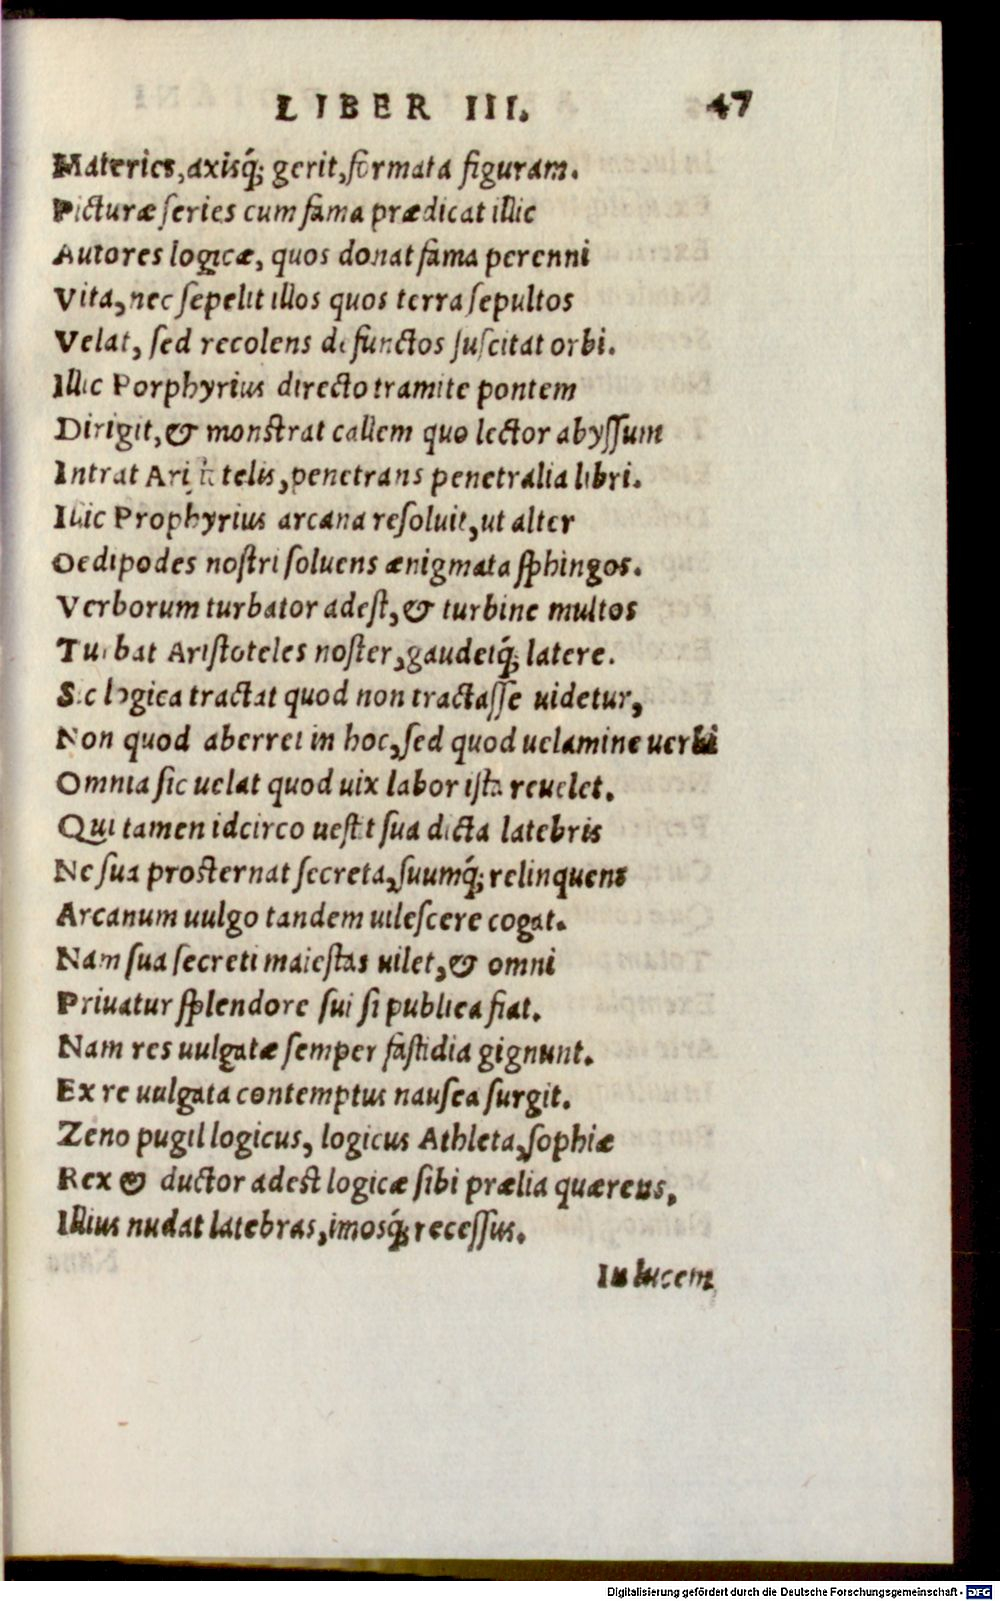 LIBER III. 47
Materies, axisq́; gerit, formata figuram.
Picturæ series cum fama prædicat illic
Autores logicæ, quos donat fama perenni
Vita, nec sepelit illos quos terra sepultos
Velat, sed recolens defunctos suscitat orbi.
Illic Porphyrius directo tramite pontem
Dirigit, & monstrat callem quo lector abyssum
Intrat Aristotelis, penetrans penetralia libri.
Illic Prophyrius arcana resoluit, ut alter
Oedipodes nostri soluens ænigmata sphingos.
Verborum turbator adest, & turbine multos
Turbat Aristoteles noster, gaudetq́; latere.
Sic logica tractat quod non tractasse uidetur,
Non quod aberret in hoc, sed quod uelamine uerbi
Omnia sic uelat quod uix labor ista reuelet.
Qui tamen idcirco uestit sua dicta latebris
Ne sua prosternat secreta, suumq́; relinquens
Arcanum uulgo tandem uilescere cogat.
Nam sua secreti maiestas uilet, & omni
Priuatur splendore sui si publica fiat.
Nam res uulgatæ semper fastidia gignunt.
Ex re uulgata contemptus nausea surgit.
Zeno pugil logicus, logicus Athleta, sophiæ
Rex & ductor adest logicæ sibi prælia quærens,
Illius nudat latebras, imosq́; recessus.
In lucem
Digitalisierung gefördert durch die Deutsche Forschungsgemeinschaft - DFG